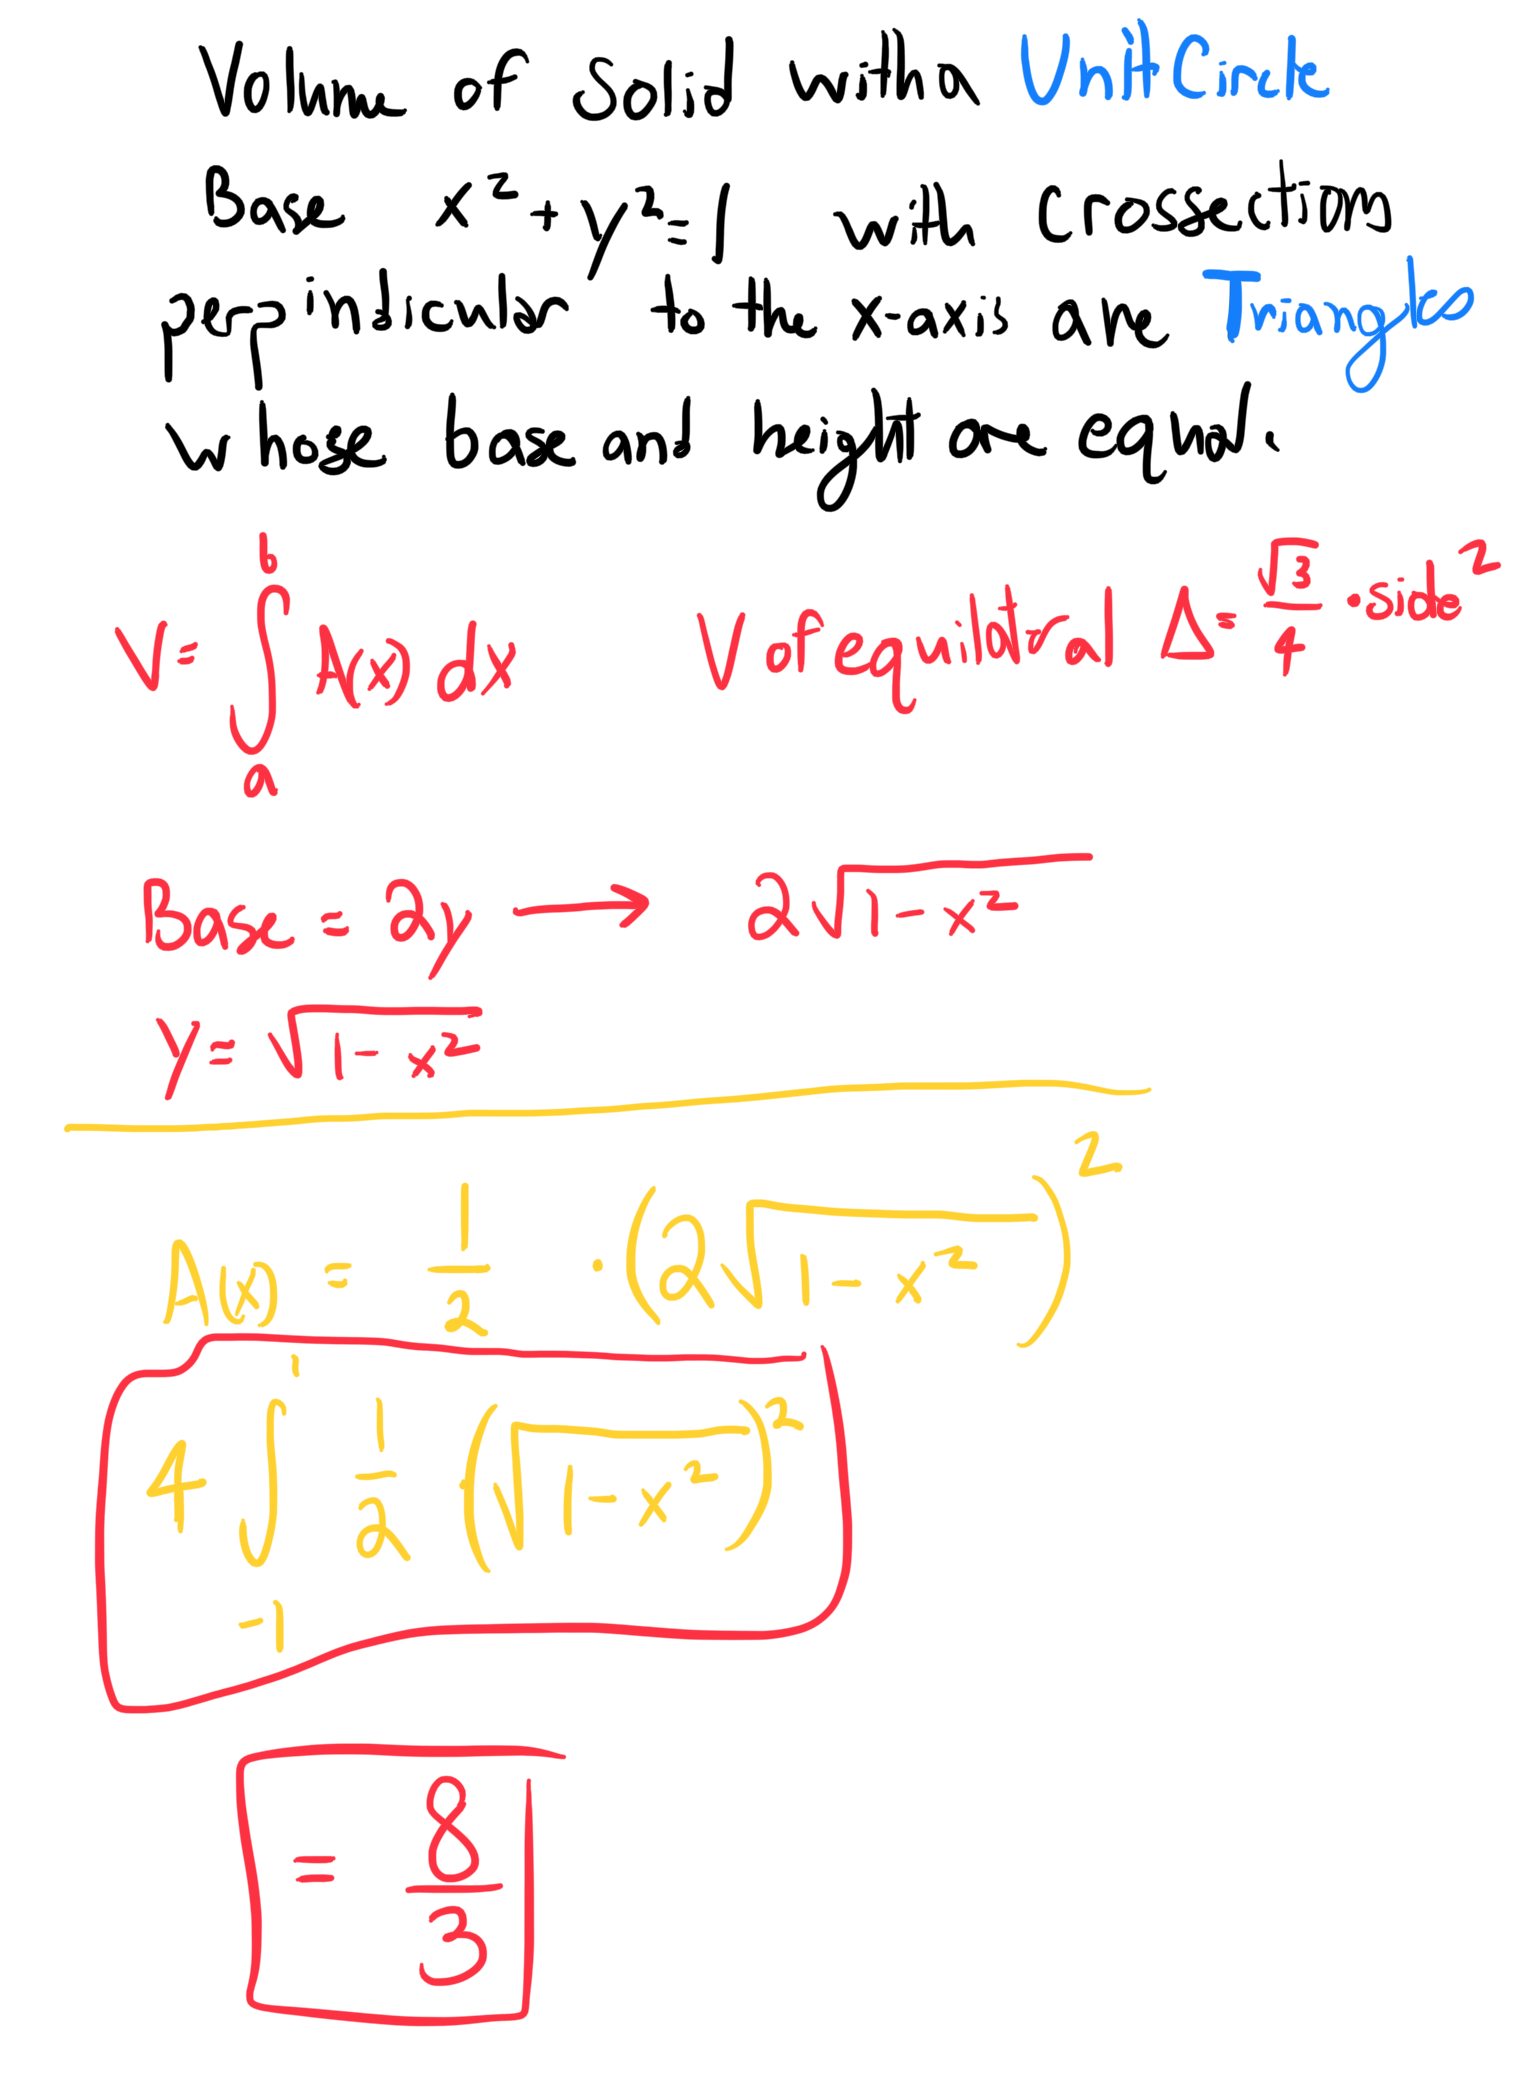 Volume of Solid with a Unit Circle
Base x² + y² = 1 with crossections
perpindicular to the x-axis are Triangles
whose base and height are equal.
V = ∫ₐᵇ A(x) dx V of equilateral Δ = √3/4 · side²
Base = 2y → 2√(1 - x²)
y = √(1 - x²)
A(x) = 1/2 · (2√(1 - x²))²
4 ∫₋₁¹ 1/2 (√(1 - x²))²
= 8/3